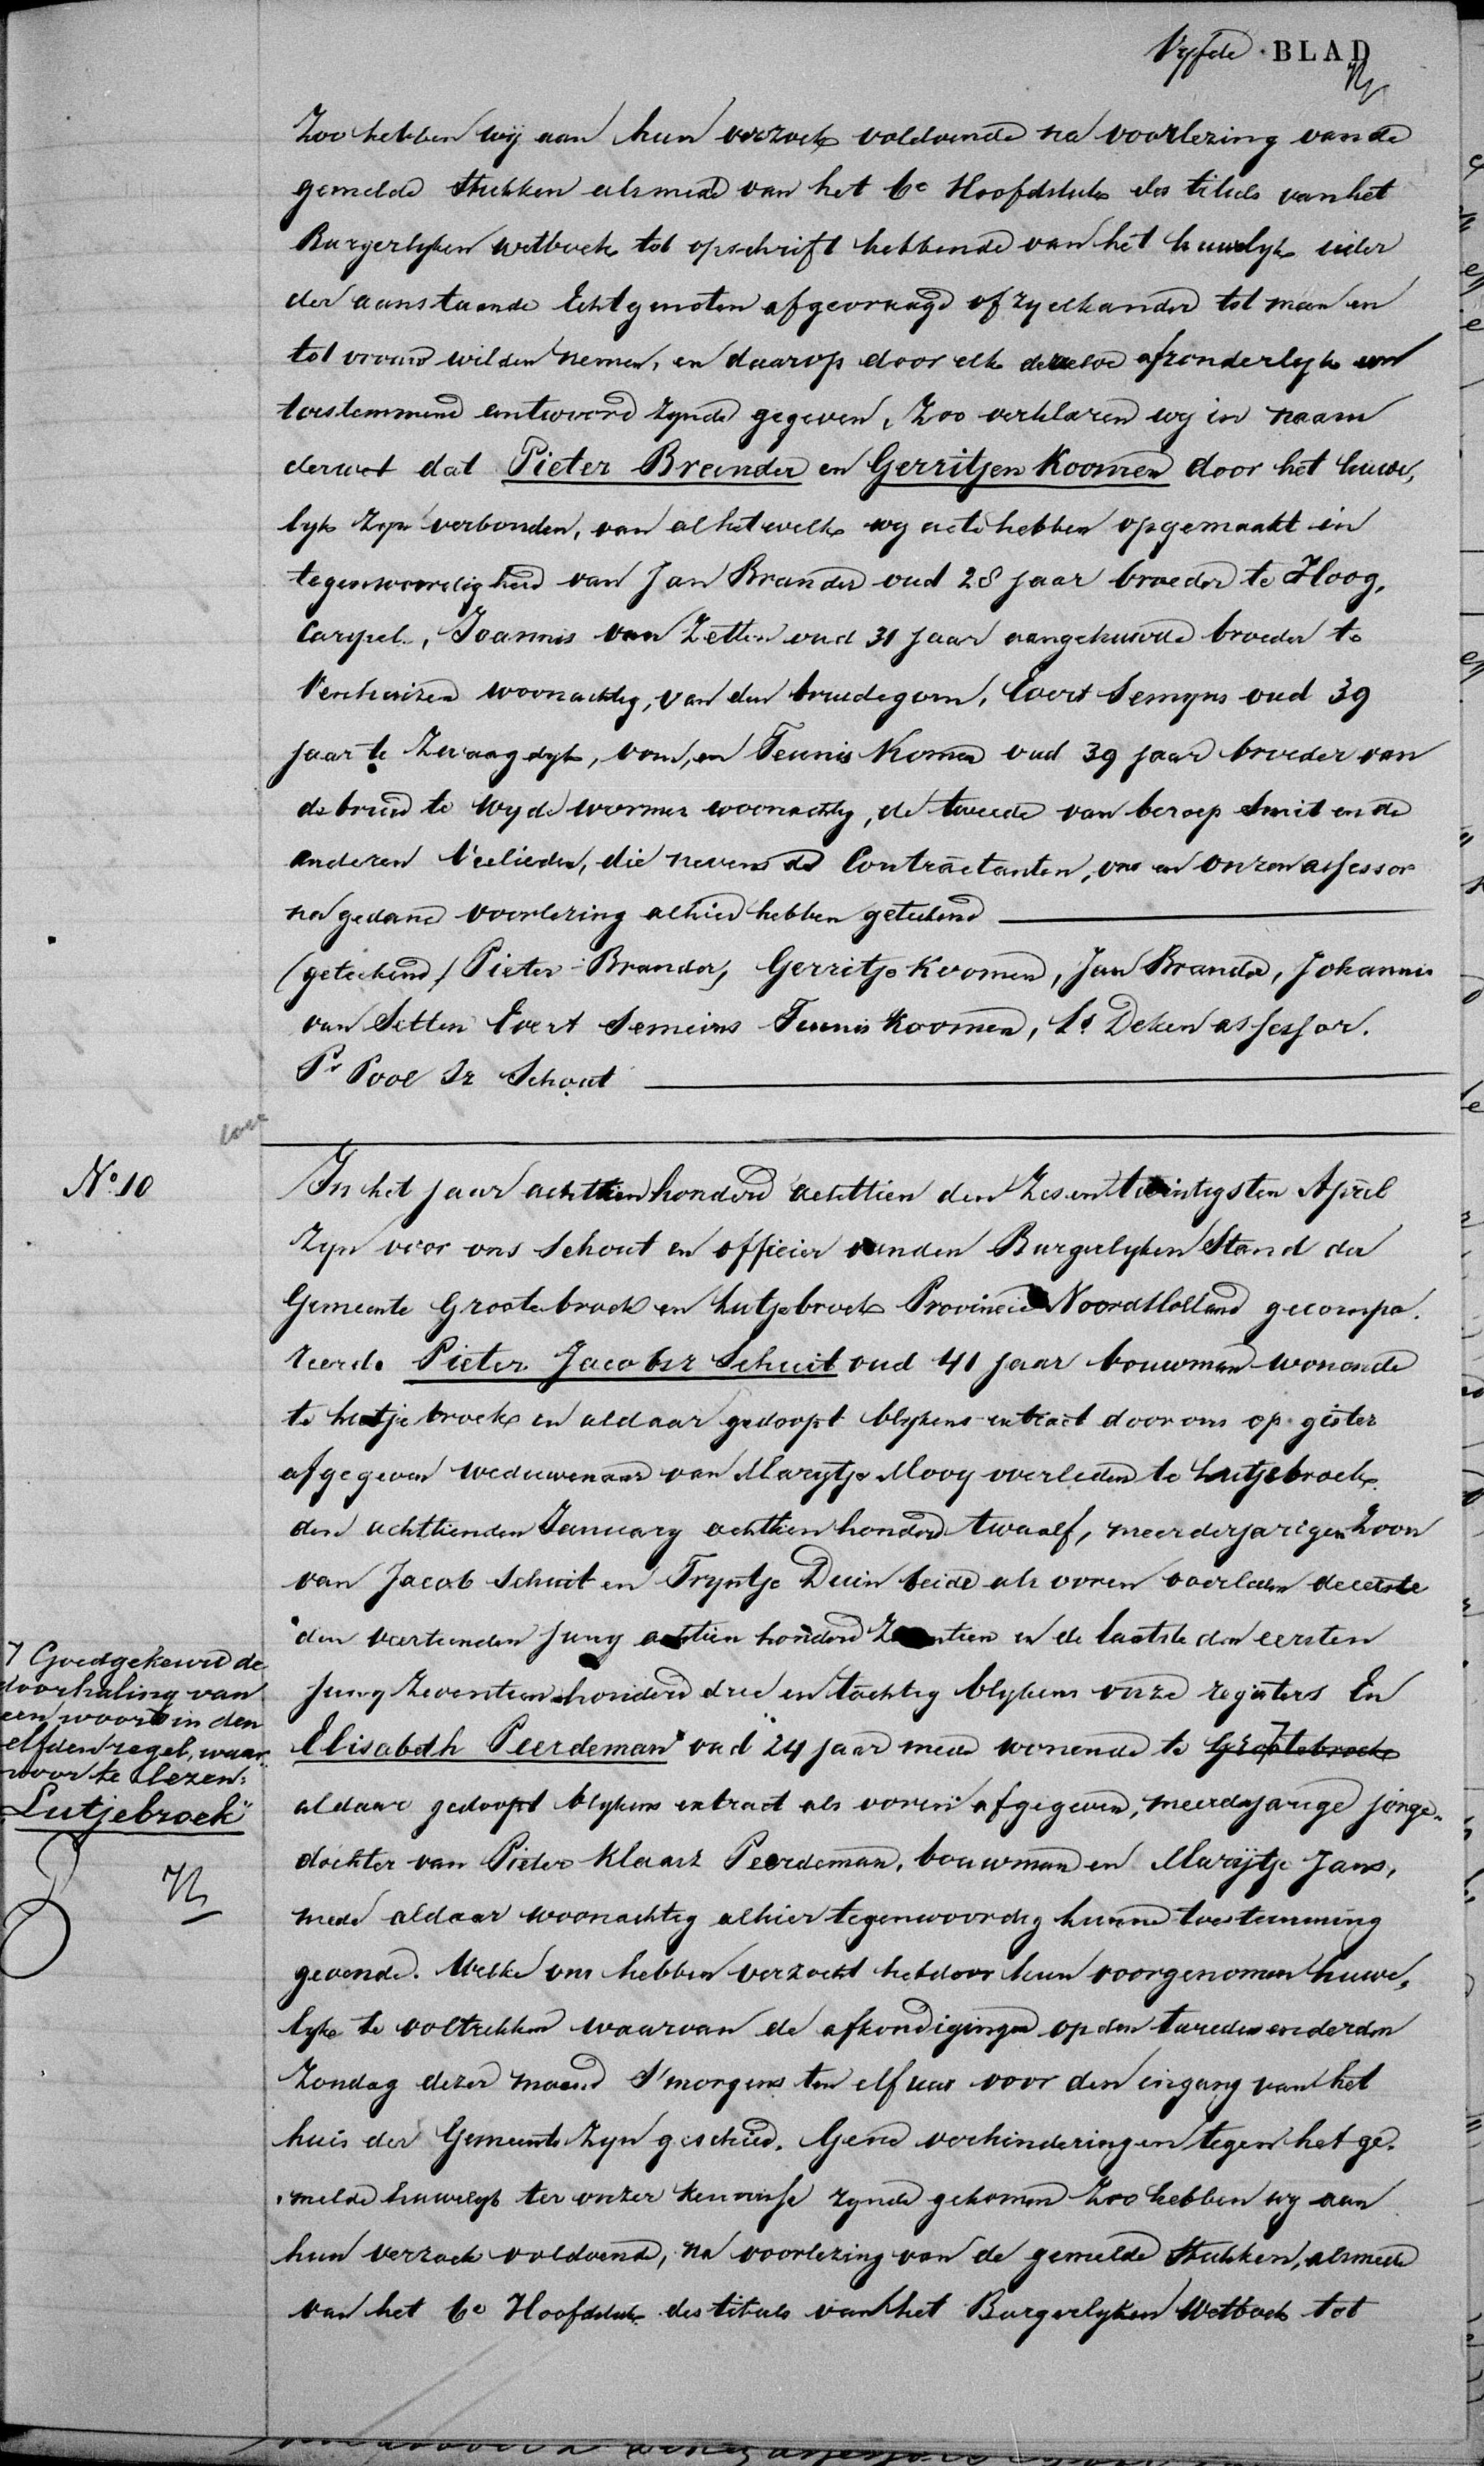 Vyfde BLAD
Zoo hebben wij aan hun verzoek voldoende na voorlezing van de
gemelde stukken alsmede van het 6e Hoofdstuk des tituls van het
Burgerlyken wetboek tot opschrift hebbende van het huwelyk ieder
der aanstaande Echtgenoten afgevraagd of zy elkander tot man en
tot vrouw wilden nemen, en daarop door elk derzelve afzonderlyk een
toestemmend antwoord zynde gegeven, Zoo verklaren wy in naam
der wet dat Pieter Brander en Gerritjen Koomen door het huwe,
lyk zyn verbonden, van al hetwelk wy acte hebben opgemaakt in
tegenwoordigheid van Jan Brander oud 28 jaar broeder te Hoog,
Carspel, Joannis van Zetten oud 31 jaar aangehuwde broeder te
Venhuizen woonachtig, van den bruidegom, Evert Semyns oud 39
jaar te Zwaagdyk, oom, en Teunis Komen oud 39 jaar broeder van
de bruid te Wyde wormer woonachtig, de tweede van beroep Smit en de
anderen Veelieden, die nevens de Contractanten, ons en onzen assessor
na gedane voorlezing alhier hebben getekend
(geteekend) Pieter Brander, Gerritje Koomen, Jan Brander, Johannis
van Setten Evert Semeins Teunis Koomen, Ls Deken assessor.
Pr Pool Jz Schout
No. 10
In het jaar achttien honderd achttien den Zesentwintigsten April
Zyn voor ons Schout en officier van den Burgerlyken Stand der
Gemeente Grootebroek en Lutjebroek Provincie Noord Holland gecompa.
reerd. Pieter Jacobsz Schuit oud 41 jaar bouwman wonende
te Lutjebroek en aldaar gedoopt blykens extract door ons op gister
afgegeven weduwenaar van Marytje Mooy overleden te Lutjebroek
den achttienden January achttien honderd twaalf, meerderjarigen Zoon
van Jacob Schuit en Tryntje Duin beide als voren overleden de eerste
den veertienden Juny achttien honderd Zeventien en de laatste den eersten
Juny Zeventien honderd drie en tachtig blykens onze registers En
Elisabeth Peerdeman oud 24 jaar mede wonende te Grootebroek
aldaar gedoopt blykens extract als voren afgegeven, meerderjarige jonge-
dochter van Pieter Klaasz Peerdeman, bouwman en Marijtje Jans,
mede aldaar woonachtig alhier tegenwoordig hunne toestemming
gevende. Welke ons hebben verzocht het door hun voorgenomen huwe,
lyk te voltrekken waarvan de afkondigingen op den tweeden en derden
Zondag dezer maand S'morgens ten elf uur voor den ingang van het
huis der Gemeente Zyn geschied. Gene verhinderingen tegen het ge-
melde huwelyk ter onzer kennisse zynde gekomen Zoo hebben wy aan
hun verzoek voldoende, na voorlezing van de gemelde stukken, alsmede
van het 6e Hoofdstuk des tituls van het Burgerlyken Wetboek tot
Goedgekeurd de
doorhaling van
een woord in den
elfden regel, waar-
voor te lezen:
"Lutjebroek"